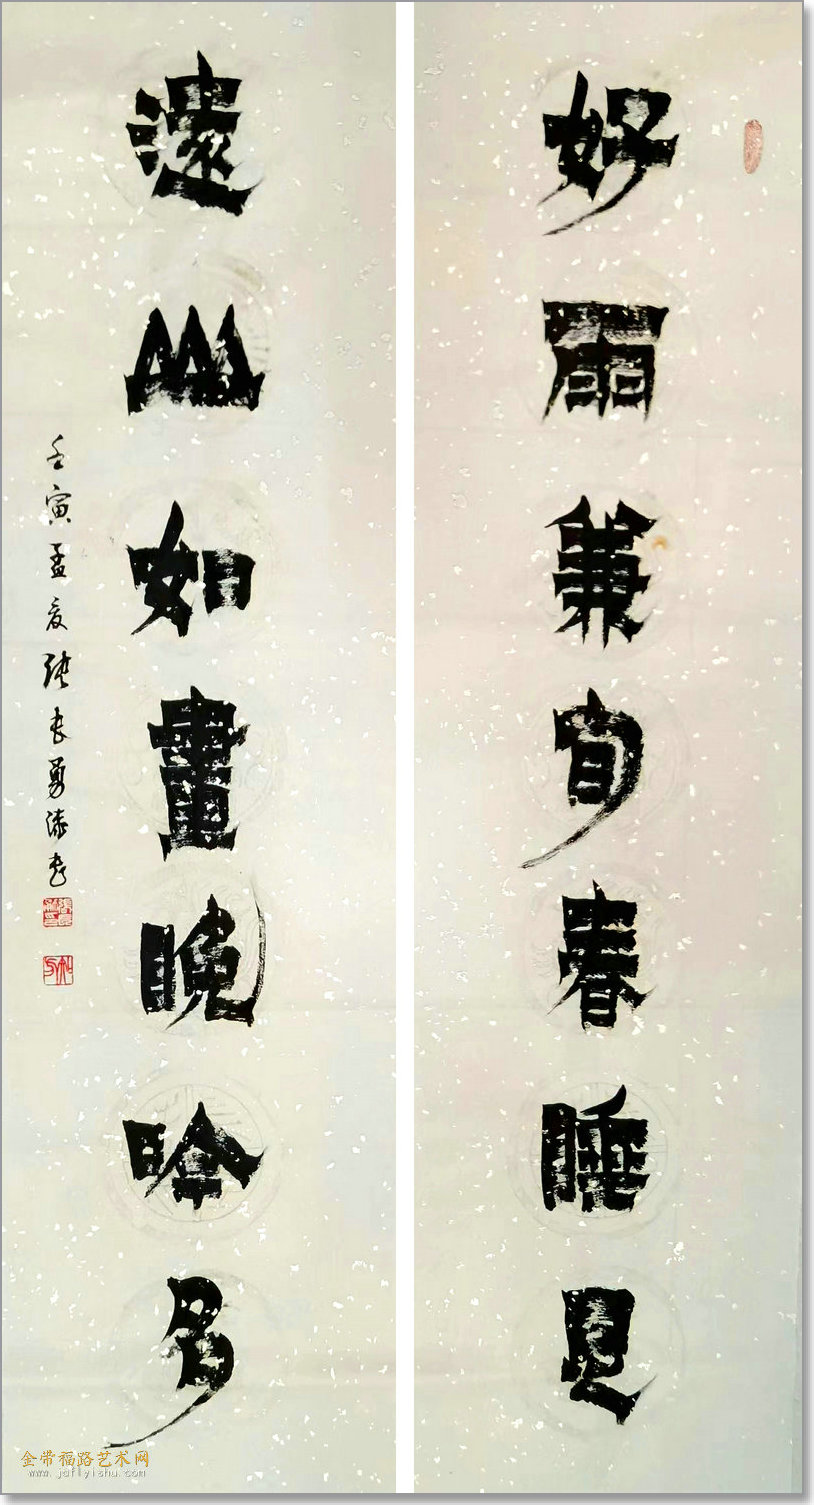 好雨兼旬春睡足
遠山如畫晚吟多
壬寅孟夏張長勇漆書
金带福路艺术网
www.jdflyishu.com